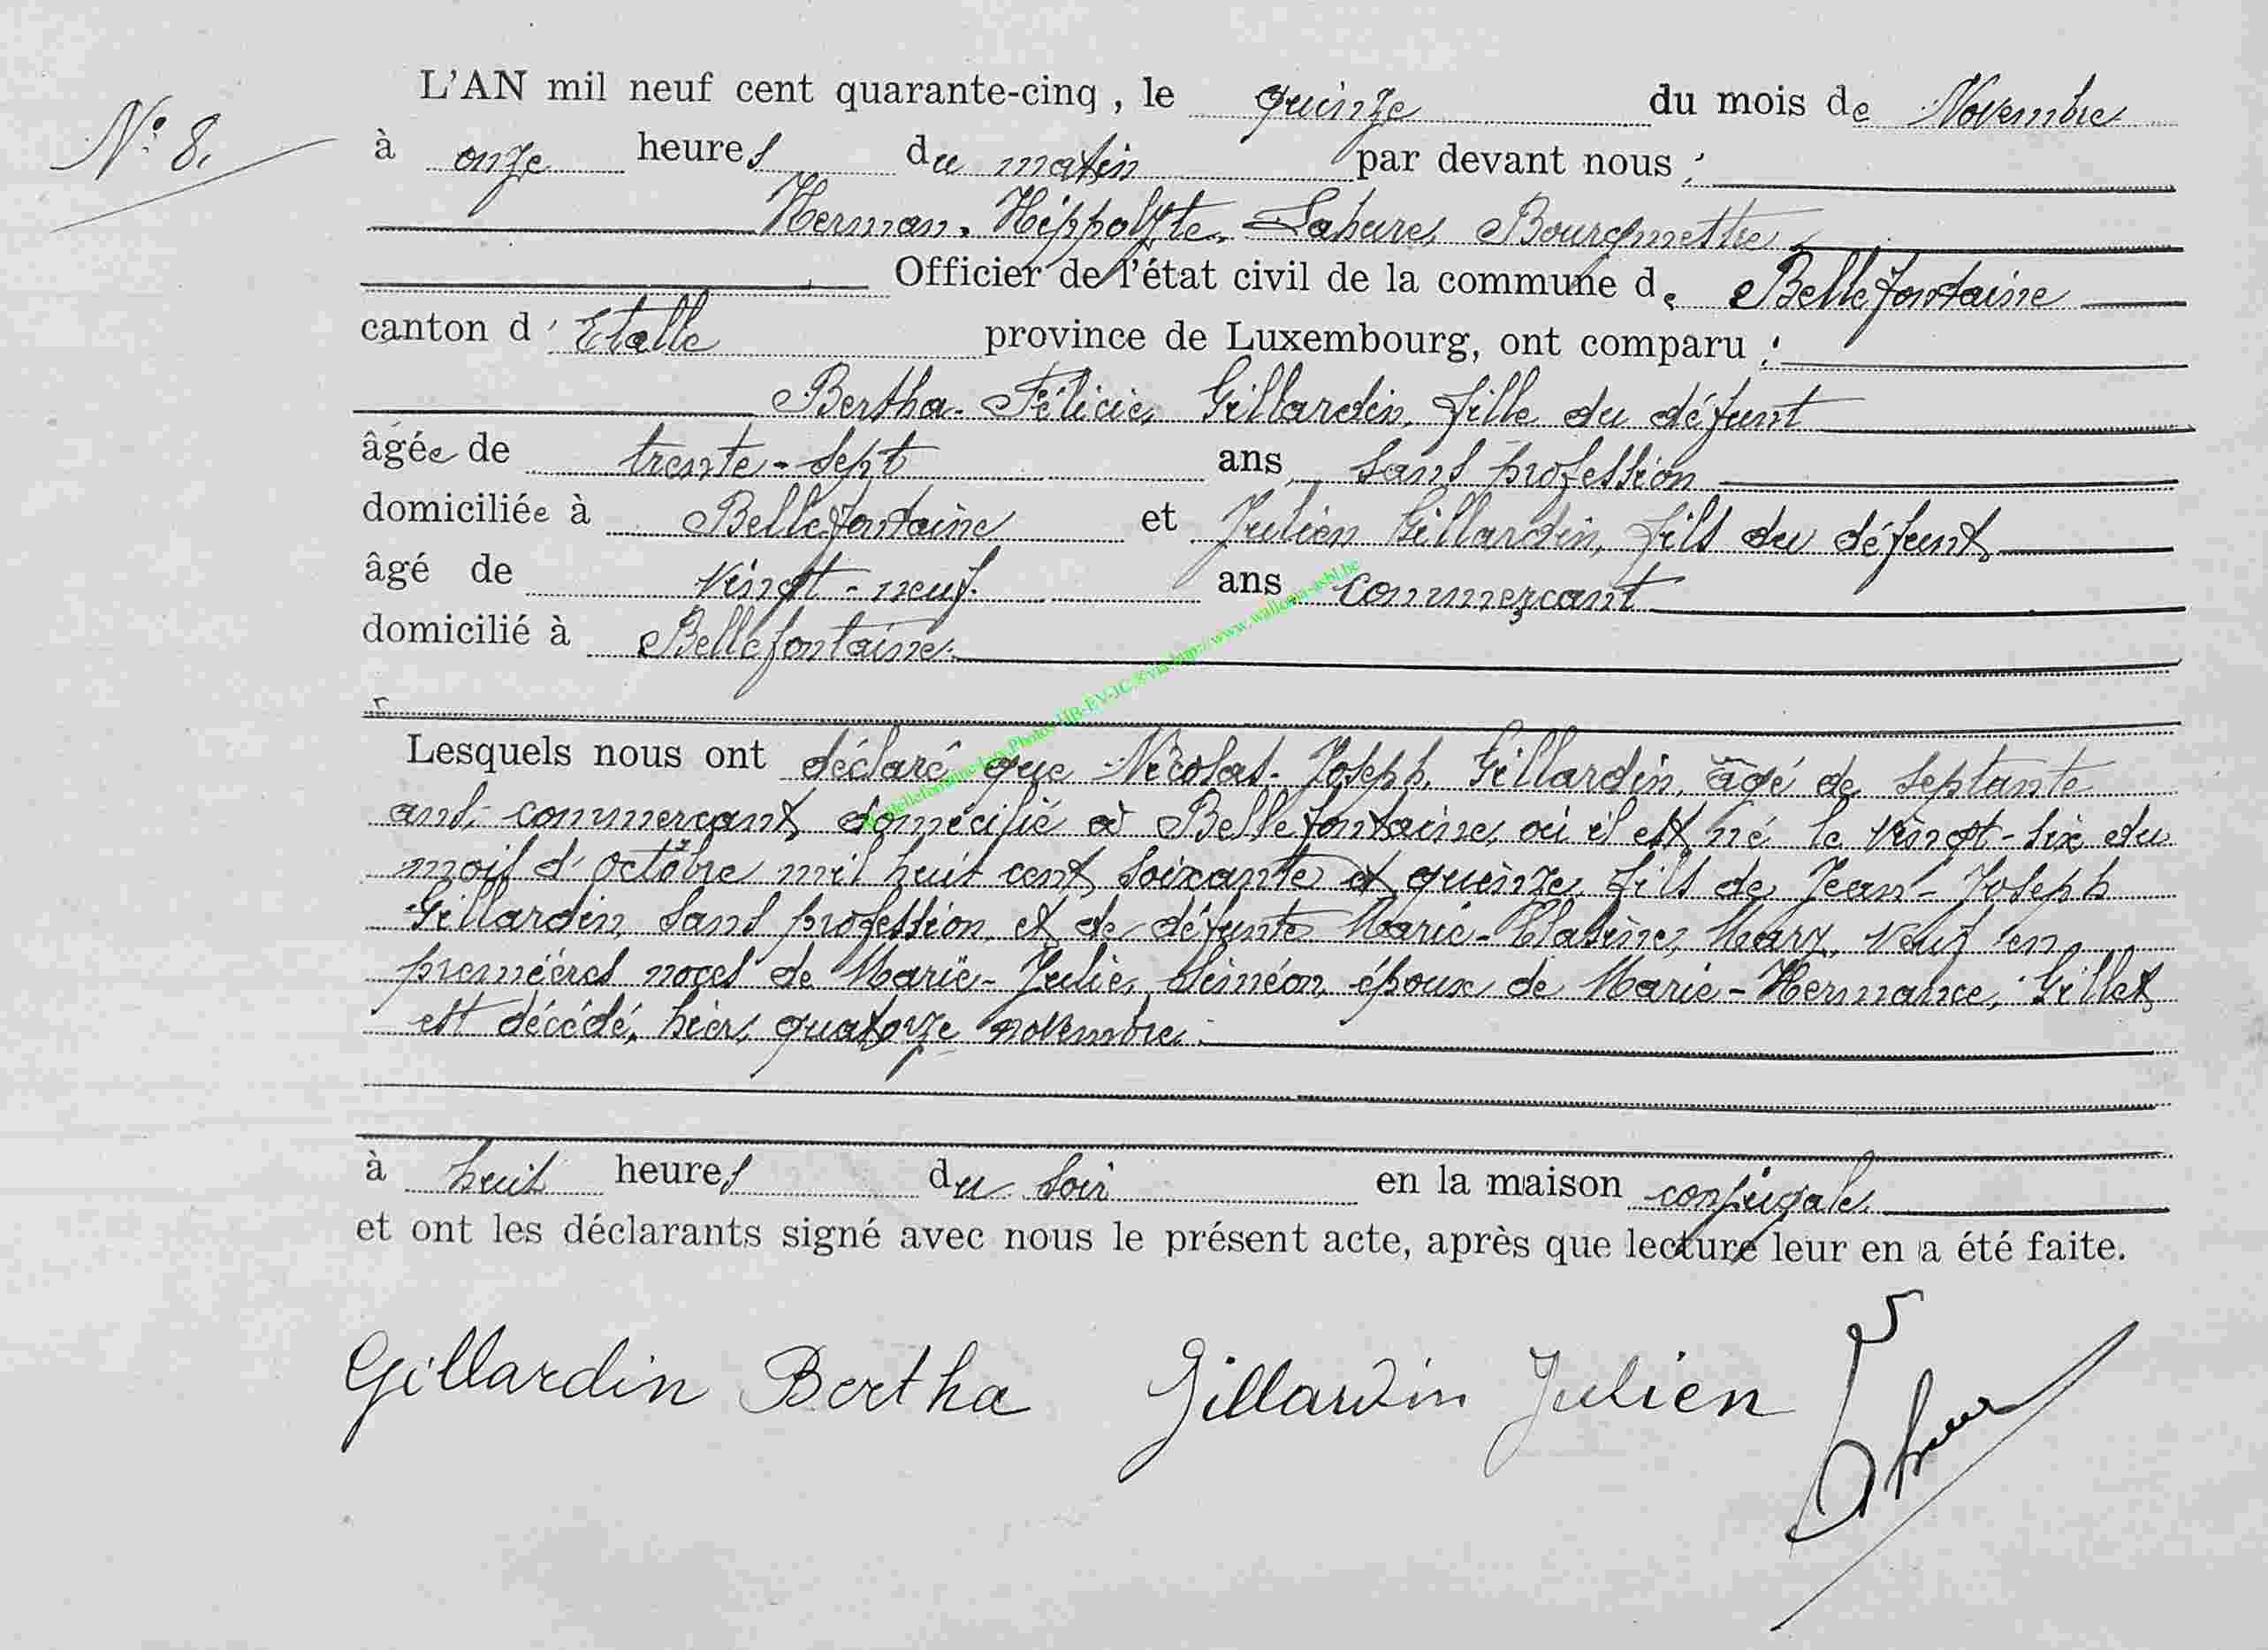 L'AN mil neuf cent quarante-cinq, le quinze du mois de Novembre
N° 8.
à onze heures du matin par devant nous :
Herman. Hippolyte. Lahure, Bourgmettre
Officier de l'état civil de la commune de Bellefontaine
canton d'Etalle province de Luxembourg, ont comparu :
Bertha-Félicie, Gillardin, fille du défunt
âgée de trente-sept ans, sans profession
domiciliée à Bellefontaine et Julien Gillardin, fils du défunt
âgé de vingt-neuf ans commerçant
domicilié à Bellefontaine.
Lesquels nous ont déclaré que Nicolas-Joseph, Gillardin, âgé de septante
ans, commerçant, domicilié à Bellefontaine, où il est né le vingt-six du
mois d'octobre mil huit cent soixante et quinze, fils de Jean-Joseph
Gillardin, sans profession, et de défunte Marie- Mary, veuf en
premières noces de Marie-Julie, Siméon, époux de Marie-Hermance, Gillet
est décédé, hier, quatorze novembre.
à huit heures du soir en la maison conjugale
et ont les déclarants signé avec nous le présent acte, après que lecture leur en a été faite.
Gillardin Bertha Gillardin Julien